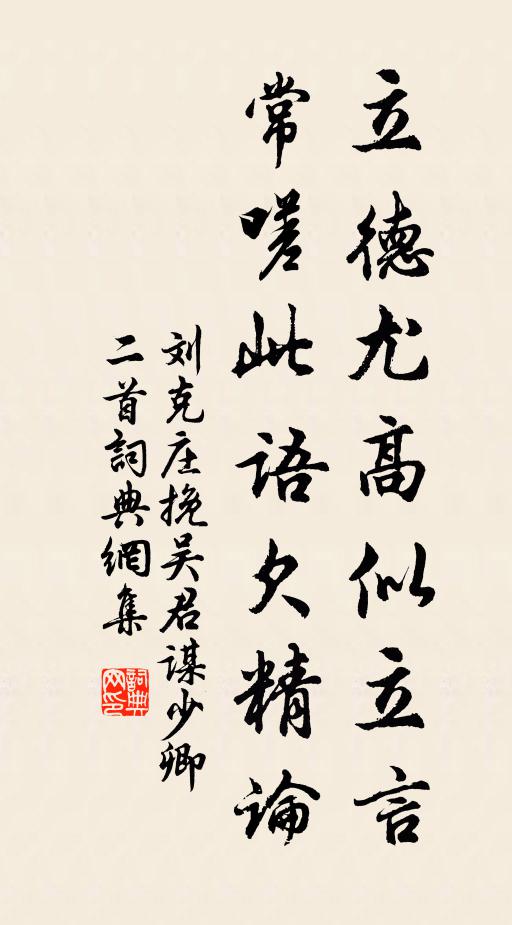 立德尤高似立言
常嗟此语欠精論
刘克庄挽吴君谋少卿
二首詞典網集
詞典
网印